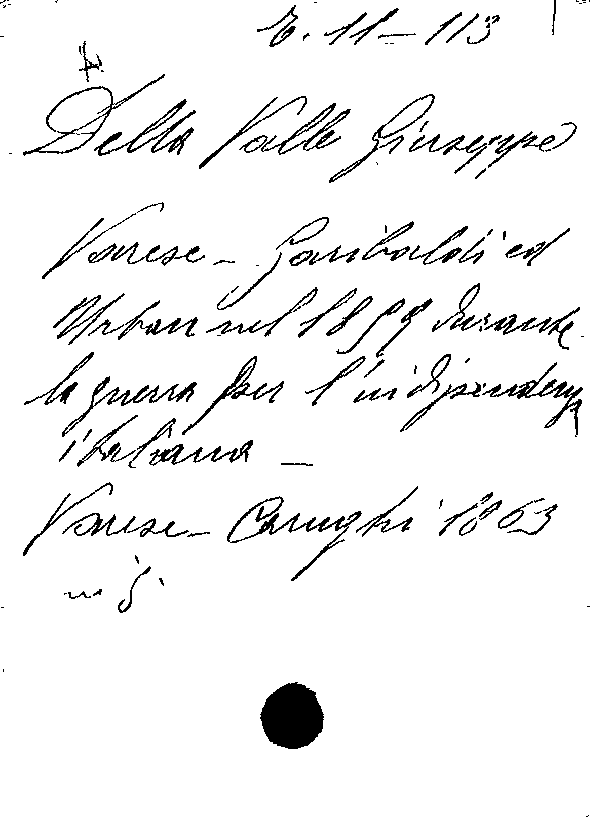 E. 11 - 113
Della Valle Giuseppe
Varese - Garibaldi ed
Urban nel 1859 durante
la guerra per l'indipendenza
italiana -
Varese - Carughi 1863
in 8.